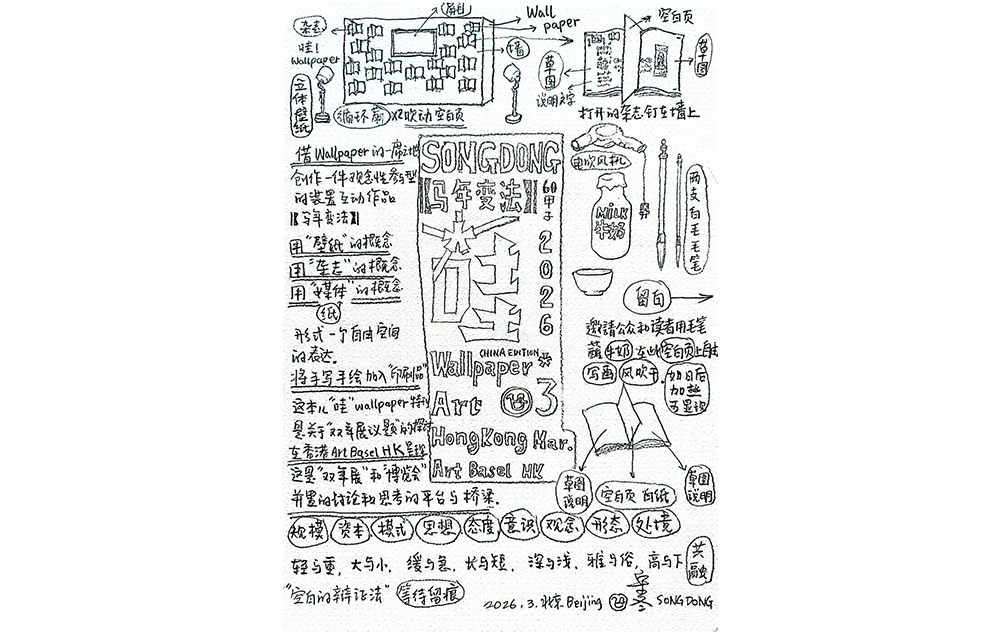 杂志
哇!
Wallpaper
Wall
paper
墙
空白页
草图
草图
说明文字
打开的杂志钉在墙上
立体壁纸
循环扇 X2 吹动空白页
借Wallpaper的一席之地
创作一件观念性参与型
的装置互动作品
【马年变法】
用“壁纸”的概念
用“杂志”的概念
用“媒体”的概念
纸
形式一个自由空间
的表达。
将手写手绘加入“印刷品”
这本儿“哇”wallpaper特刊
是关于“双年展议题”的探讨
在香港Art Basel HK呈现
这是“双年展”和“博览会”
并置的讨论和思考的平台与桥梁。
SONGDONG
【马年变法】
60甲子
2026
哇
CHINA EDITION
Wallpaper*
Art 3
HongKong Mar.
Art Basel HK
电吹风机
MiLK
牛奶
两支白毛毛笔
留白
邀請公众和读者用毛笔
蘸牛奶在此空白页上自由
写画 风吹干.
如日后加热可显识
草图说明
空白页 白纸
草图说明
规模 资本 模式 思想 态度 意识 观念 形态 处境
轻与重, 大与小, 缓与急, 长与短, 深与浅, 雅与俗, 高与下
共融
“空白的辩证法” 等待留痕
2026.3.北京Beijing SONG DONG